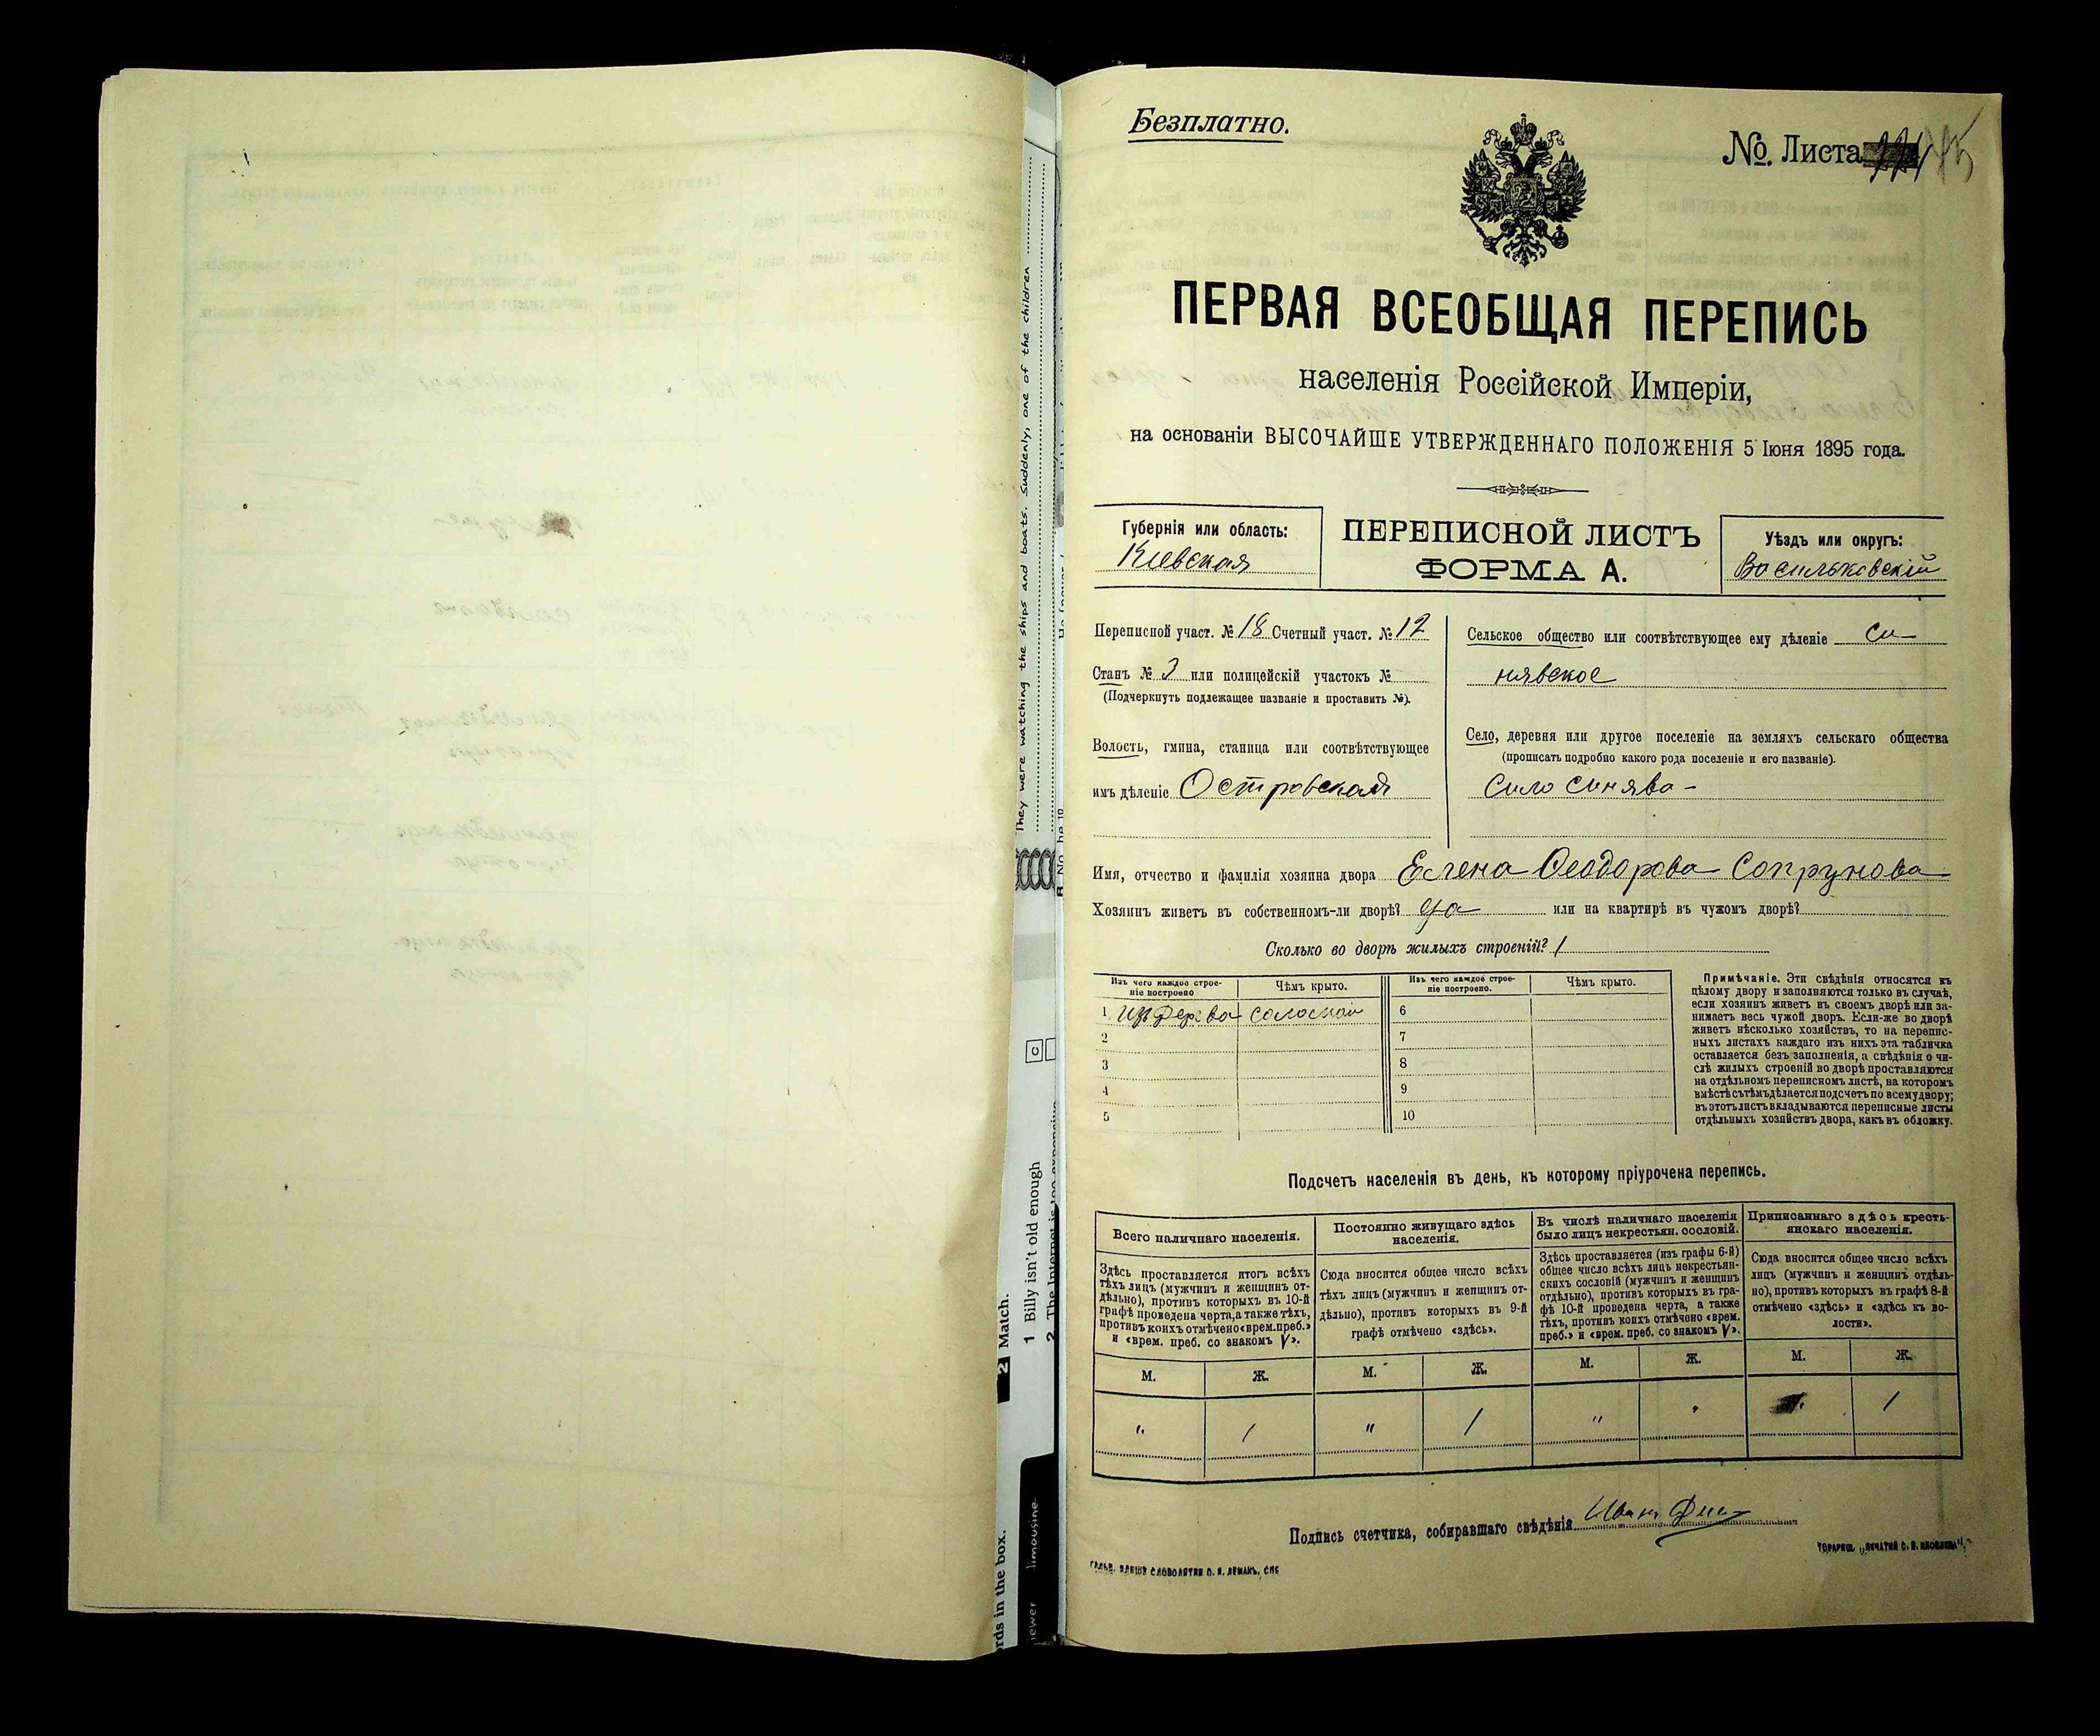 Безплатно.
№. Листа
ПЕРВАЯ ВСЕОБЩАЯ ПЕРЕПИСЬ
населенія Россійской Имперіи,
на основаніи ВЫСОЧАЙШЕ УТВЕРЖДЕННАГО ПОЛОЖЕНІЯ 5 Іюня 1895 года.
Губернія или область:
Кіевская
ПЕРЕПИСНОЙ ЛИСТЪ
ФОРМА А.
Уѣздъ или округъ:
Васильковскій
Переписной участ. № 18 Счетный участ. № 12
Станъ № 3 или полицейскій участокъ №
(Подчеркнуть подлежащее названіе и проставить №).
Волость, гмина, станица или соотвѣтствующее
имъ дѣленіе Островская
Сельское общество или соотвѣтствующее ему дѣленіе Си-
нявское
Село, деревня или другое поселеніе на земляхъ сельскаго общества
(прописать подробно какого рода поселеніе и его названіе).
Село Синява -
Имя, отчество и фамилія хозяина двора Елена Ѳеодорова Сопрунова
Хозяинъ живетъ въ собственномъ-ли дворѣ? да или на квартирѣ въ чужомъ дворѣ?
Сколько во дворѣ жилыхъ строеній? 1
Изъ чего каждое строе-
ніе построено
Чѣмъ крыто.
Изъ чего каждое строе-
ніе построено.
Чѣмъ крыто.
1 Изъ дерева соломой 6
2 7
3 8
4 9
5 10
Примѣчаніе. Эти свѣдѣнія относятся къ
цѣлому двору и заполняются только въ случаѣ,
если хозяинъ живетъ въ своемъ дворѣ или за-
нимаетъ весь чужой дворъ. Если-же во дворѣ
живетъ нѣсколько хозяйствъ, то на перепис-
ныхъ листахъ каждаго изъ нихъ эта табличка
оставляется безъ заполненія, а свѣдѣнія о чи-
слѣ жилыхъ строеній во дворѣ проставляются
на отдѣльномъ переписномъ листѣ, на которомъ
вмѣстѣ съ тѣмъ дѣлается подсчетъ по всему двору;
въ этотъ листъ вкладываются переписные листы
отдѣльныхъ хозяйствъ двора, какъ въ обложку.
Подсчетъ населенія въ день, къ которому пріурочена перепись.
Всего наличнаго населенія.
Постоянно живущаго здѣсь
населенія.
Въ числѣ наличнаго населенія
было лицъ некрестьян. сословій.
Приписаннаго здѣсь кресть-
янскаго населенія.
Здѣсь проставляется итогъ всѣхъ
тѣхъ лицъ (мужчинъ и женщинъ от-
дѣльно), противъ которыхъ въ 10-й
графѣ проведена черта, а также тѣхъ,
противъ коихъ отмѣчено «врем. преб.»
и «врем. преб. со знакомъ V».
Сюда вносится общее число всѣхъ
тѣхъ лицъ (мужчинъ и женщинъ от-
дѣльно), противъ которыхъ въ 9-й
графѣ отмѣчено «здѣсь».
Здѣсь проставляется (изъ графы 6-й)
общее число всѣхъ лицъ некрестьян-
скихъ сословій (мужчинъ и женщинъ
отдѣльно), противъ которыхъ въ гра-
фѣ 10-й проведена черта, а также
тѣхъ, противъ коихъ отмѣчено «врем.
преб.» и «врем. преб. со знакомъ V».
Сюда вносится общее число всѣхъ
лицъ (мужчинъ и женщинъ отдѣль-
но), противъ которыхъ въ графѣ 8-й
отмѣчено «здѣсь» и «здѣсь къ во-
лости».
М. Ж. М. Ж. М. Ж. М. Ж.
" 1 " 1 " " 1
Подпись счетчика, собиравшаго свѣдѣнія Иванъ
СЛОВОЛИТНЯ О. И. ЛЕМАНЪ, СПБ
ТОВАРИЩ. „ПЕЧАТНЯ С. П. ЯКОВЛЕВА“
They were watching the ships and boats. Suddenly, one of the children
C
2 Match.
1 Billy isn't old enough
2 The Internet is too expensive
rds in the box.
limousine